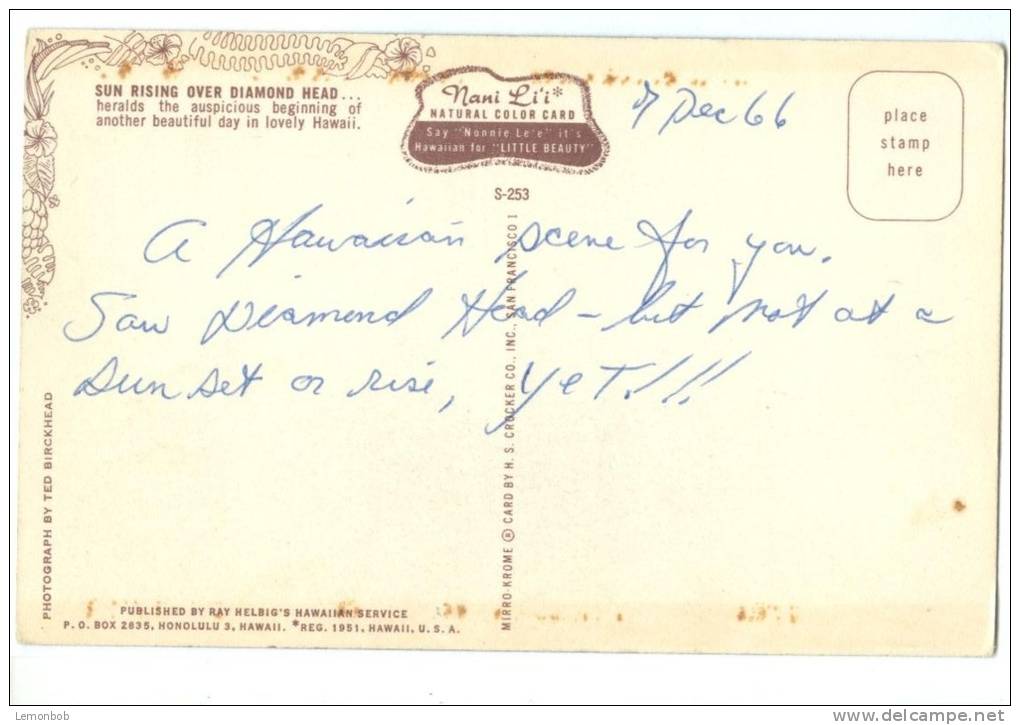 SUN RISING OVER DIAMOND HEAD...
heralds the auspicious beginning of
another beautiful day in lovely Hawaii.
Nani Li'i*
NATURAL COLOR CARD
Say "Nonnie Le'e" it's
Hawaiian for "LITTLE BEAUTY"
S-253
7 Dec 66
place
stamp
here
A Hawaiian scene for you.
Saw Diamond Head - but not at a
sun set or rise, yet!!!
PHOTOGRAPH BY TED BIRCKHEAD
MIRRO-KROME ® CARD BY H. S. CROCKER CO., INC., SAN FRANCISCO 1
PUBLISHED BY RAY HELBIG'S HAWAIIAN SERVICE
P. O. BOX 2835, HONOLULU 3, HAWAII. *REG. 1951, HAWAII, U. S. A.
Lemonbob
www.delcampe.net